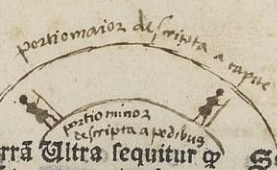 portio maior descripta a capite
portio minor
descripta a pedibus
rrã Ultra sequitur ꝙ
S